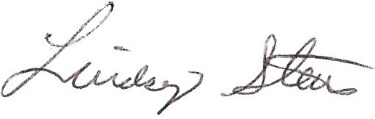 Lindsey Stens